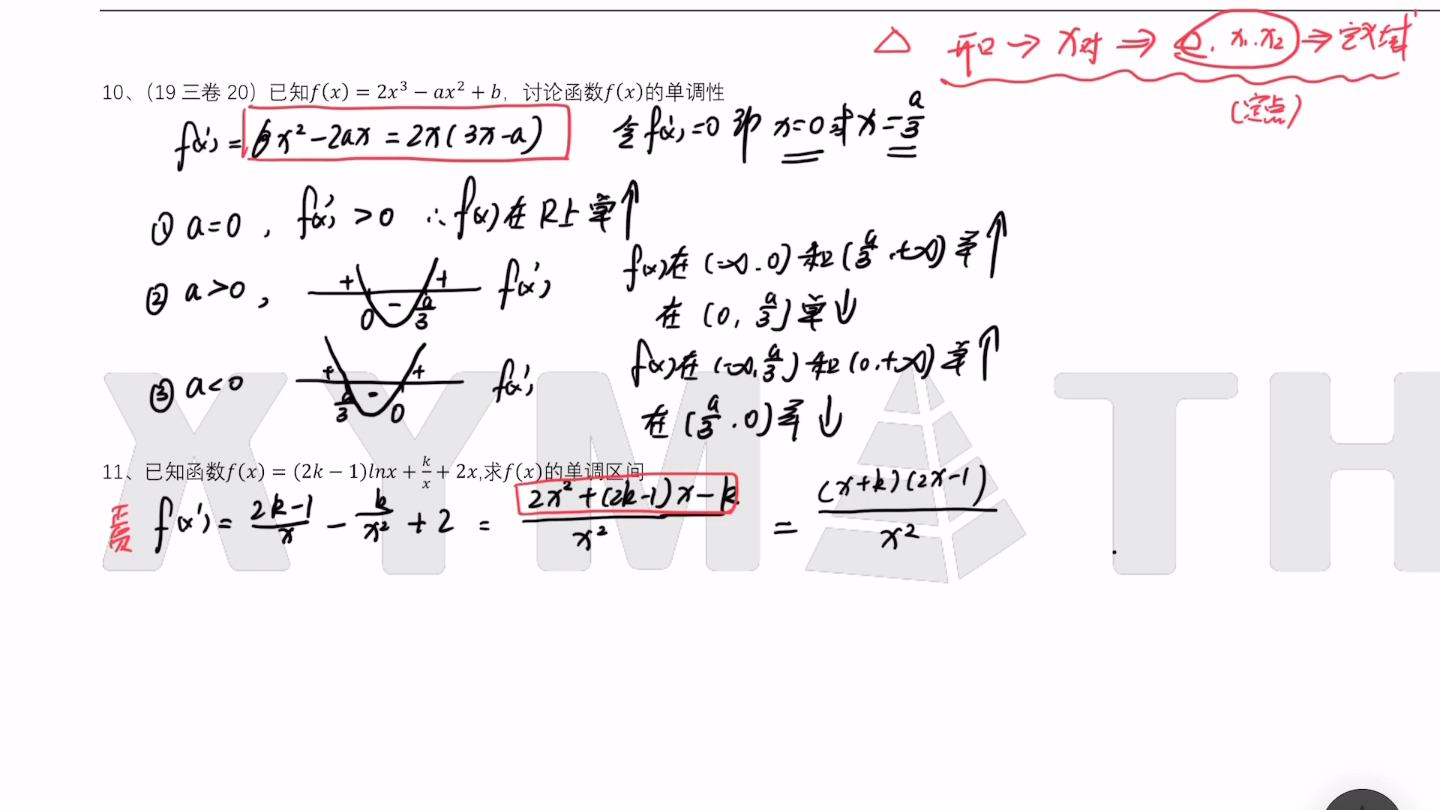 △ 开口 → x对 ⇒ △. x₁. x₂ ⇒ 定义域
(定点)
10、(19 三卷 20) 已知f(x) = 2x³ − ax² + b, 讨论函数f(x)的单调性
f'(x) = 6x² − 2ax = 2x(3x−a) 令f'(x)=0 即 x=0或x=a/3
① a=0 , f'(x) >0 ∴f(x)在R上单↑
② a>0 , + − + 0 a/3 f'(x) f(x)在(−∞.0)和(a/3.+∞)单↑
在(0, a/3)单↓
③ a<0 + − + a/3 0 f'(x) f(x)在(−∞,a/3)和(0.+∞)单↑
在(a/3.0)单↓
11、已知函数f(x) = (2k − 1)lnx + k/x + 2x,求f(x)的单调区间
f'(x) = (2k−1)/x − k/x² + 2 = (2x²+(2k−1)x−k)/x² = (x+k)(2x−1)/x²
XYMATH